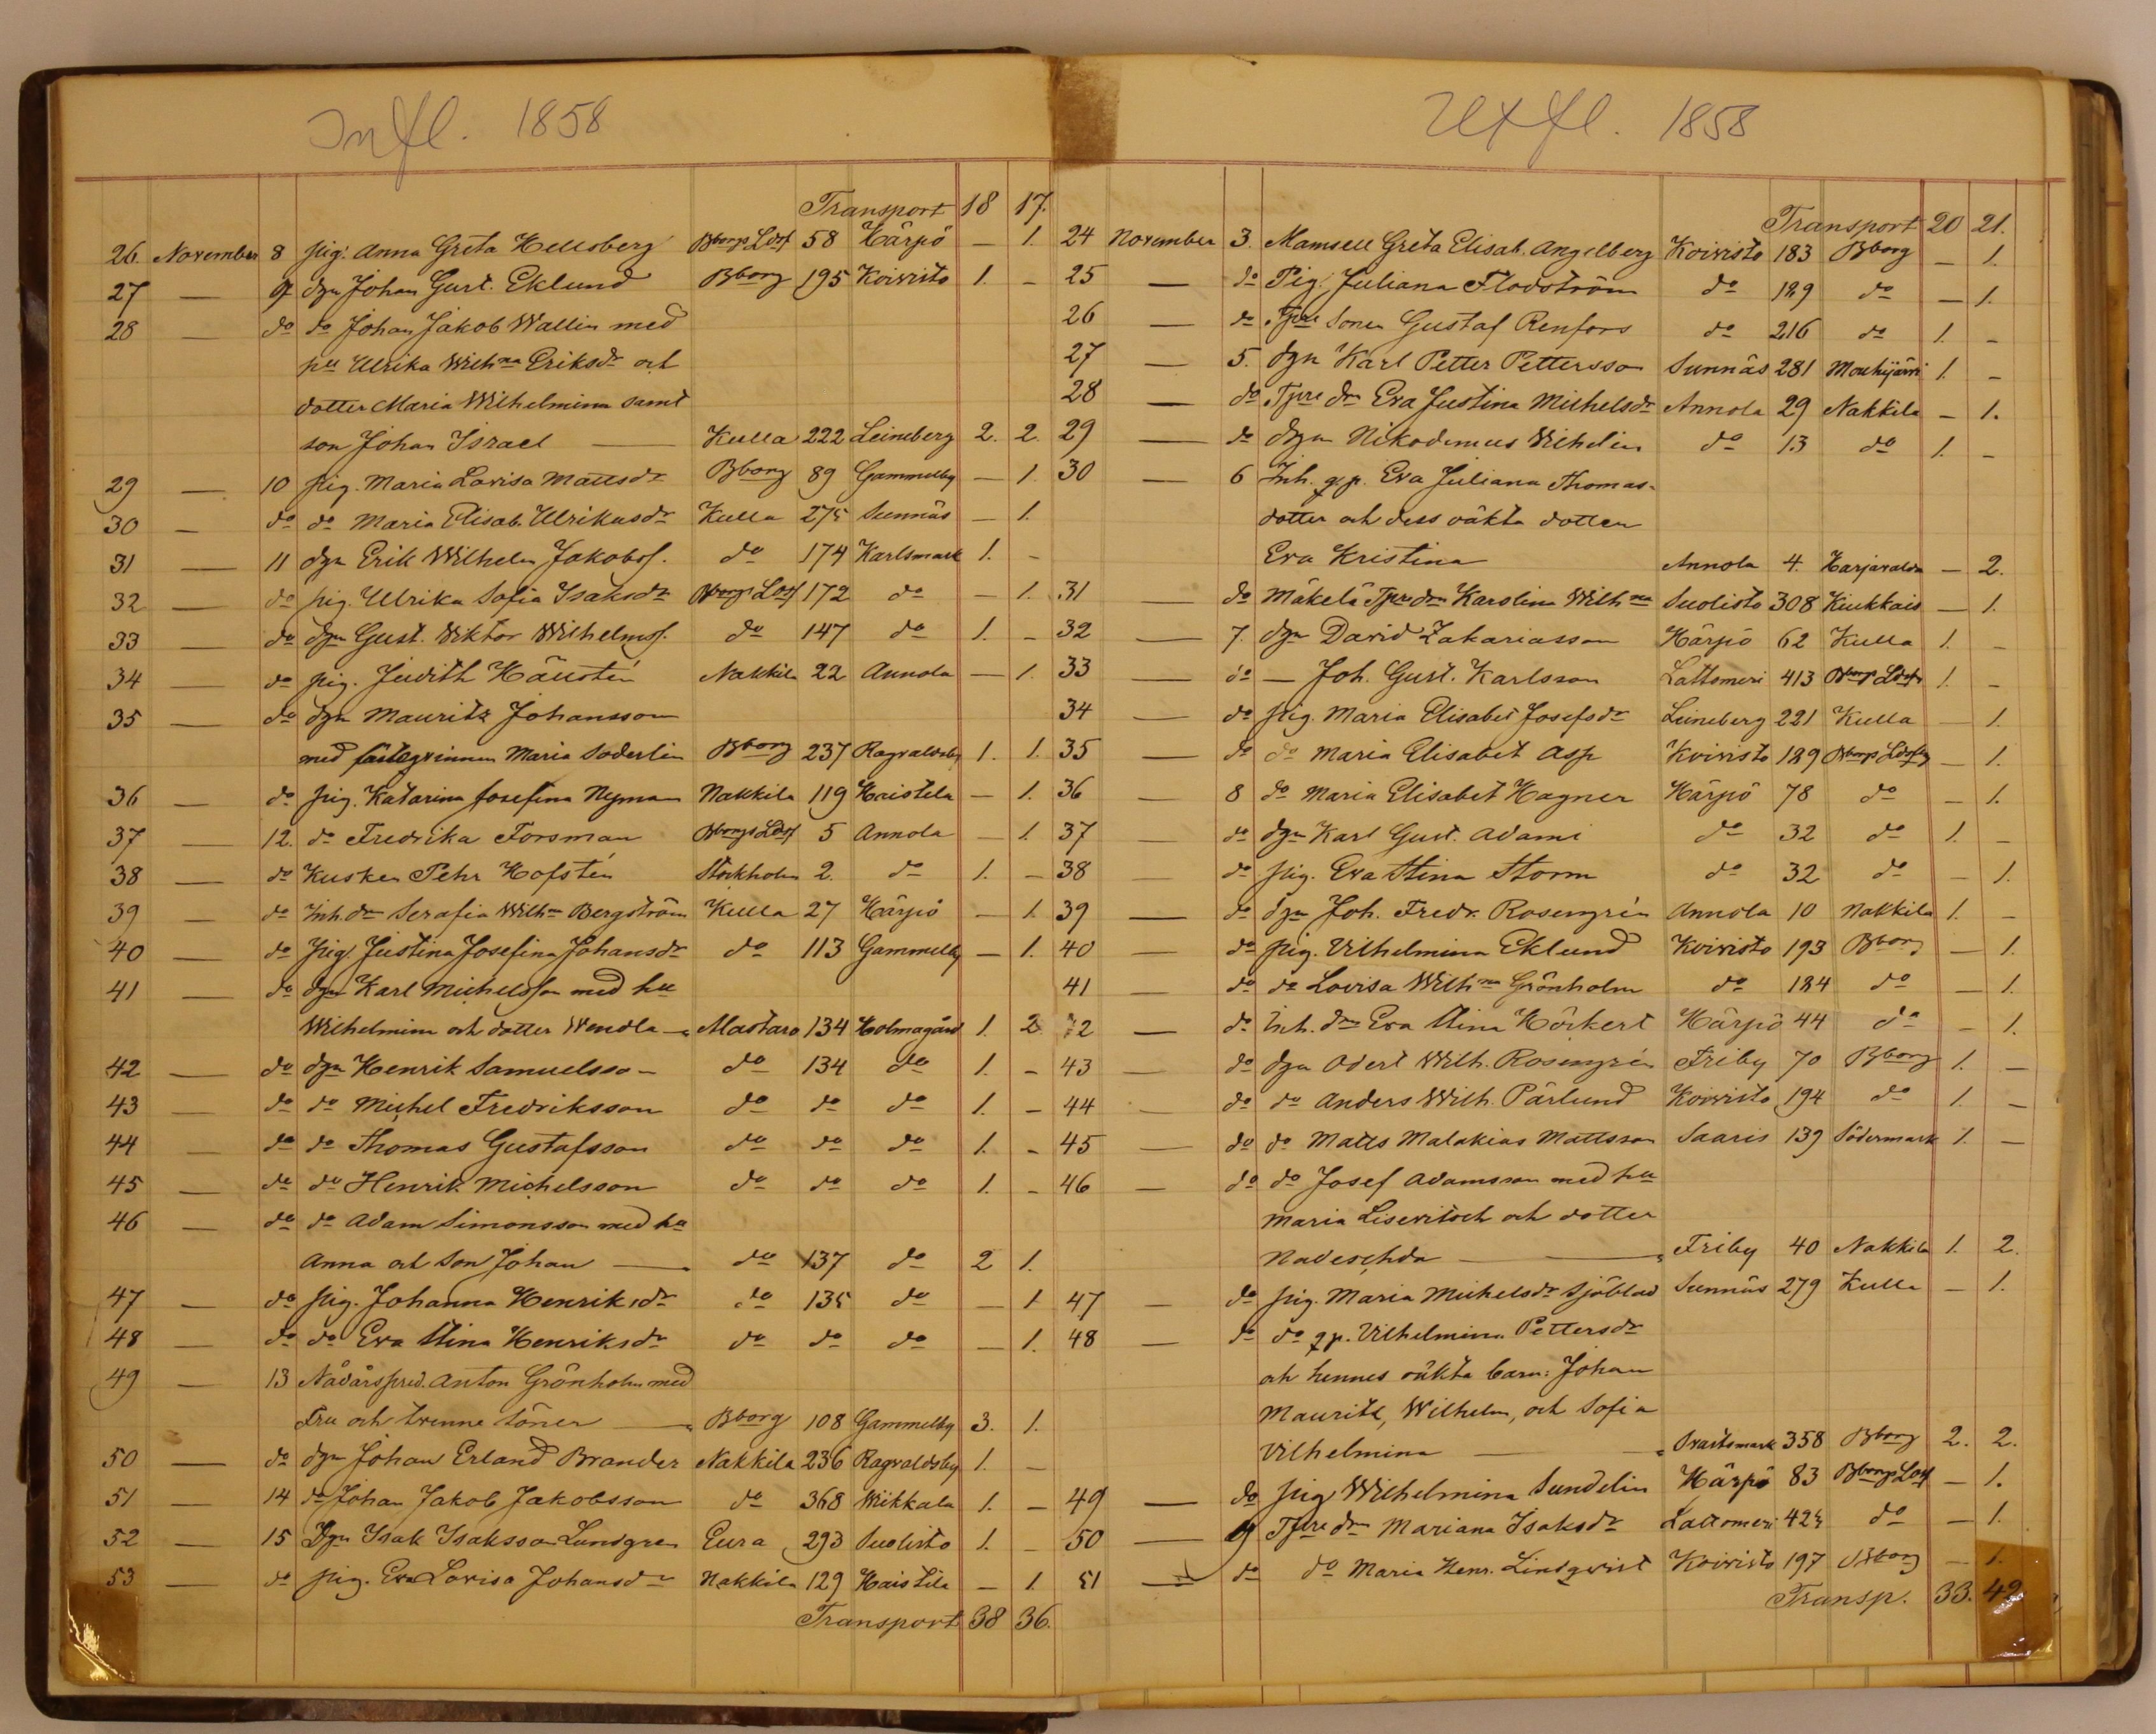 Infl. 1858
Transport 18 17.
26. November 8 pig. Anna Greta Hellsberg Bborgs Ldsf 58 Härpö — 1.
27 — 9 dgn Johan Gust. Eklund Bborg 195 Koivisto 1. –
28 — do do Johan Jakob Wallin med
hu Ulrika Wilhna Eriksdr och
dotter Maria Wilhelmina samt
son Johan Israel — Kulla 222 Leineberg 2. 2.
29 — 10 pig. Maria Lovisa Mattsdr Bborg 89 Gammelby — 1.
30 — do do Maria Elisab. Ulrikasdr Kulla 275 Sunnäs — 1.
31 — 11 dgn Erik Wilhelm Jakobss. do 174 Karlsmark 1. –
32 — do pig. Ulrika Sofia Isaksdr Bborgs Ldsf 172 do — 1.
33 — do dgn Gust. Viktor Wilhelmss. do 147 do 1. –
34 — do pig. Judith Hällstén Nakkila 22 Annola — 1.
35 — do dgn Mauritz Johansson
med fästeqvinnan Maria Söderlin Bborg 237 Ragvaldsby 1. 1.
36 — do pig. Katarina Josefina Nyman Nakkila 119 Haistila — 1.
37 — 12. do Fredrika Forsman Bborgs Ldsf 5 Annola — 1.
38 — do Kusken Pehr Hofstén Stockholm 2. do 1. –
39 — do Inh. dr Serafia Wilhna Bergström Kulla 27 Härpö — 1.
40 — do pig. Justina Josefina Johansdr do 113 Gammelby — 1.
41 — do dgn Karl Michelsson med hu
Wilhelmina och dotter Wendla — Mastaro 134 Holmagård 1. 2
42 — do dgn Henrik Samuelsso– do 134 do 1. –
43 — do do Michel Fredriksson do do do 1. –
44 — do do Thomas Gustafsson do do do 1. –
45 — do do Henrik Michelsson do do do 1. –
46 — do do Adam Simonsson med hu
Anna och Son Johan — do 137 do 2 1.
47 — do pig. Johanna Henriksdr do 135 do — 1
48 — do do Eva Stina Henriksdr do do do — 1.
49 — 13 Nådårspred. Anton Grönholm med
Fru och tvenne söner — Bborg 108 Gammelby 3. 1.
50 — do dgn Johan Erland Brander Nakkila 236 Ragvaldsby 1. —
51 — 14 do Johan Jakob Jakobsson do 368 Wikkala 1. –
52 — 15 Dgn Isak Isaksson Lundgren Eura 293 Suolisto 1. –
53 — do pig. Eva Lovisa Johansdr Nakkila 129 Haistila — 1.
Transport 38 36.
Utfl. 1858
Transport 20 21.
24 November 3. Mamsell Greta Elisab. Angelberg Koivisto 183 Bborg — 1.
25 — do Pig. Juliana Flodström do 189 do — 1.
26 — do Tpre Sonen Gustaf Renfors do 216 do 1. –
27 — 5. dgn Karl Petter Pettersson Sunnäs 281 Mouhijärvi 1. –
28 — do Tpre dr Eva Justina Michelsdr Annola 29 Nakkila — 1.
29 — do dgn Nikodemus Vihelin do 13 do 1. –
30 — 6 Inh. qp. Eva Juliana Thomas-
dotter och dess oäkta dotter
Eva Kristina Annola 4. Harjavalda — 2.
31 — do Mäkelä Tpre dr Karolina Wilhna Suolisto 308 Kiukkais — 1.
32 — 7. dgn David Zakariasson Härpö 62 Kulla 1. –
33 — do — Joh. Gust. Karlsson Lattomeri 413 Bborgs Ldsf 1. –
34 — do pig. Maria Elisabet Josefsdr Leineberg 221 Kulla — 1.
35 — do do Maria Elisabet Asp Koivisto 189 Bborgs Ldsf — 1.
36 — 8 do Maria Elisabet Hagner Härpö 78 do — 1.
37 — do dgn Karl Gust. Adami do 32 do 1. –
38 — do pig. Eva Stina Storm do 32 do — 1.
39 — do dgn Joh. Fredr. Rosengrén Annola 10 Nakkila 1. –
40 — do pig. Vilhelmina Eklund Koivisto 193 Bborg — 1.
41 — do do Lovisa Wilhna Grönholm do 184 do — 1.
42 — do Inh. dr Eva Stina Körkert Härpö 44 do — 1.
43 — do dgn Odert Wilh. Rosengrén Friby 70 Bborg 1. –
44 — do do Anders Wilh. Pärlund Koivisto 194 do 1. –
45 — do do Matts Malakias Mattsson Saaris 139 Södermark 1. –
46 — do do Josef Adamsson med hu
Maria Lisevitsch och dotter
Nadeschda — Friby 40 Nakkila 1. 2.
47 — do pig. Maria Michelsdr Sjöblad Sunnäs 279 Kulla — 1.
48 — do do qp. Vilhelmina Pettersdr
och hennes oäkta barn: Johan
Mauritz, Wilhelm, och Sofia
Vilhelmina — Svartsmark 358 Bborg 2. 2.
49 — do pig Wilhelmina Sundelin Härpö 83 Bborgs Ldsf — 1.
50 — 9 Tpre dr Mariana Isaksdr Lattomeri 425 do — 1.
51 — do do Maria Henr. Lindqvist Koivisto 197 Bborg — 1.
Transp. 33. 42